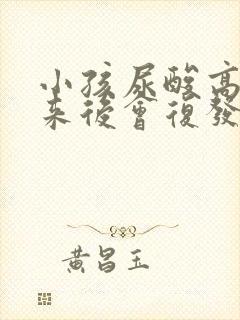 小孩尿酸高
来後會復發
黄昌玉